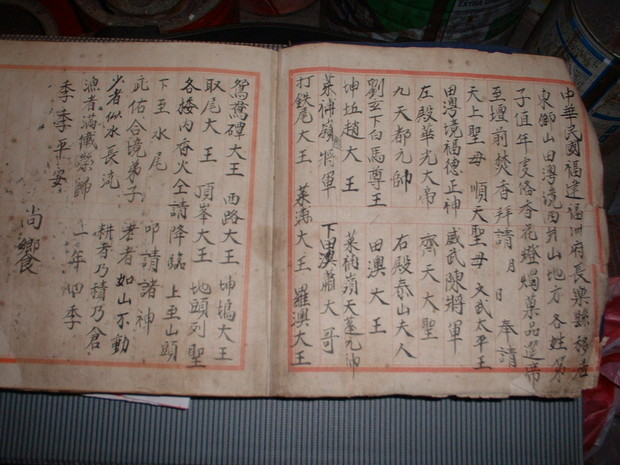 中華民國福建福州府長樂縣移
東獅山田澳境內 山地方 各姓弟
子值年虔俻香花燈燭菓品筵席
至壇前焚香拜請 月 日 奉請
天上聖母 順天聖母 文武太平王
田澳境福德正神 威武陳將軍
左殿華光大帝 齊天大聖
九天都元帥 右殿泰山夫人
劉玄下白馬尊王 田澳大王
坤坵趙大王 嶺天蓬元帥
嶺將軍 下田澳蕭大哥
打鉄尾大王 大王 羅澳大王
鴛鴦磹大王 西路大王 坤塢大王
取尾大王 頂峯大王 地頭列聖
各楼內香火仝請降臨 上至山頭
下至水尾 叩請諸神
庇佑合境弟子 老者如山不動
少者似水長流 耕者乃積乃倉
漁者滿儎榮歸 一年四季
季季平安
尚饗